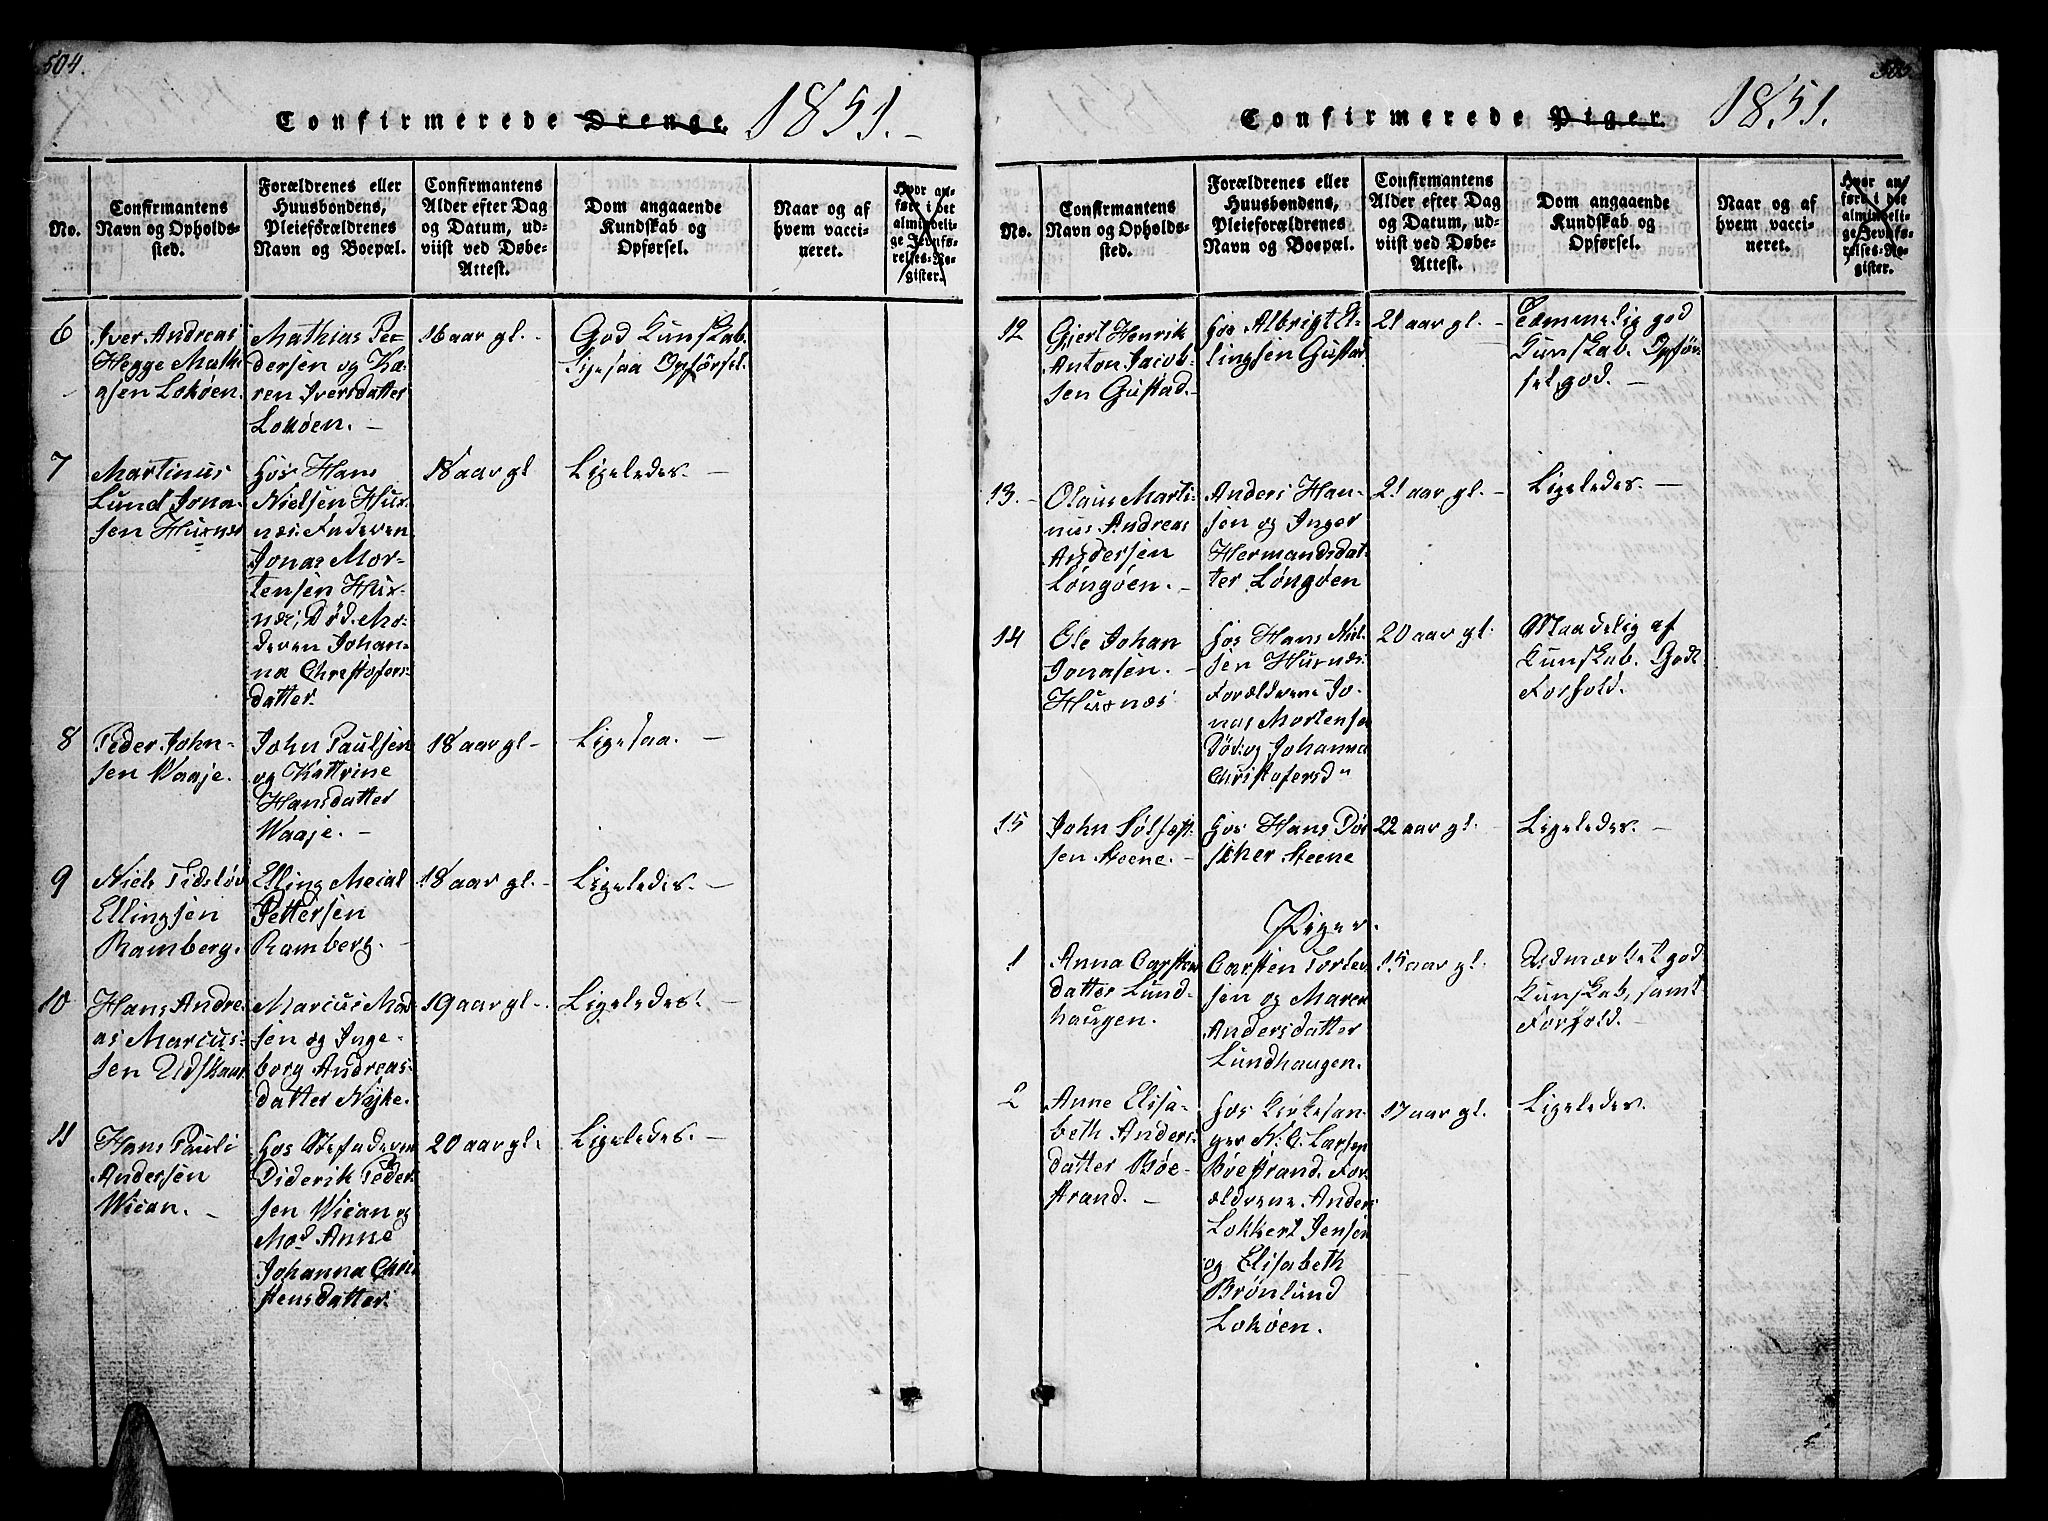 504.
Confirmerede Drenge. 1851.-
No.
Confirmantens
Navn og Opholds-
sted.
Forældrenes eller
Huusbondens,
Pleieforældrenes
Navn og Boepæl.
Confirmantens
Alder efter Dag
og Datum, ud-
viist ved Døbe-
Attest.
Dom angaaende
Kundskab og
Opførsel.
Naar og af
hvem vacci-
neret.
Hvor an-
ført i det
almindeli-
ge Jevnfø-
relses-Re-
gister.
6
Iver Andreas
Hegge Mathi
asen Lokøen.
Mathias Pe-
dersen og Ka-
ren Iversdatter
Lokøen. -
16 aar gl. -
God Kunskab.
Ligesaa Opførsel.
7
Martinus
Lund Jona-
sen Huxnæs
hos Hans
Nielsen Hux-
næs. Faderen
Jonas Mor-
tensen Hux-
næs, Død. Mo-
deren Johan-
na Christofers-
datter.
18 aar gl
Ligeledes. -
8
Peder John-
sen Waaje.
John Paulsen
og Kattrine
Hansdatter
Waaje. -
18 aar gl -
Ligesaa. -
9
Niels Tidsløv
Ellingsen
Ramberg.
Elling Meial
Pettersen
Ramberg.
18 aar gl. -
Ligeledes. -
10
Hans Andre-
as Marcus-
sen Udskaar
Marcus Mad
sen og Inge-
borg Andreas-
datter Nyke.
19 aar gl -
Ligeledes. -
11
Hans Pauli
Andersen
Wiean. -
hos Stefaderen
Diderik Peder
sen Wiean og
Mod Anne
Johanna Chri
stensdatter.
20 aar gl.
Ligeledes. -
505.
Confirmerede Piger. 1851.
No.
Confirmantens
Navn og Opholds-
sted.
Forældrenes eller
Huusbondens,
Pleieforældrenes
Navn og Boepæl.
Confirmantens
Alder efter Dag
og Datum, ud-
viist ved Døbe-
Attest.
Dom angaaende
Kundskab og
Opførsel.
Naar og af
hvem vacci-
neret.
Hvor an-
ført i det
almindeli-
ge Jevnfø-
relses-Re-
gister.
12
Gjert Henrik
Anton Jacob-
sen Gustad. -
hos Albrigt El-
lingsen Gustad
21 aar gl. -
Temmelig god
Kunskab. Opfør-
sel god. -
13. -
Olaus Marti-
nus Andreas
Andersen
Løngøen. -
Anders Han-
sen og Inger
Hermandsdat-
ter Løngøen
21 aar gl. -
Ligeledes. -
14
Ole Johan
Jonasen. -
Huxnæs
hos Hans Niel-
sen Huxnæs.
Forældrene Jo-
nas Mortensen
Død. og Johanna
Christofersd"
20 aar gl.
Maadelig af
Kunskab. Godt
Forhold.
15
John Sølfæst-
sen Steene. -
hos Hans Dør
scher Steene
22 aar gl.
Ligeledes. -
Piger.
1
Anna Carsten
datter Lund-
haugen.
Carsten Torste
sen og Maren
Andersdatter
Lundhaugen.
15 aar gl.
Udmærket god
Kunskab, samt
Forhold. -
2
Anne Elisa-
beth Anders-
datter Bøe-
strand. -
hos Kirkesan-
ger N. C. Larsen
Bøestrand. For-
ældrene Anders
Lokkert Jensen
og Elisabeth
Brønlund
Lokøen.
17 aar gl.
Ligeledes.